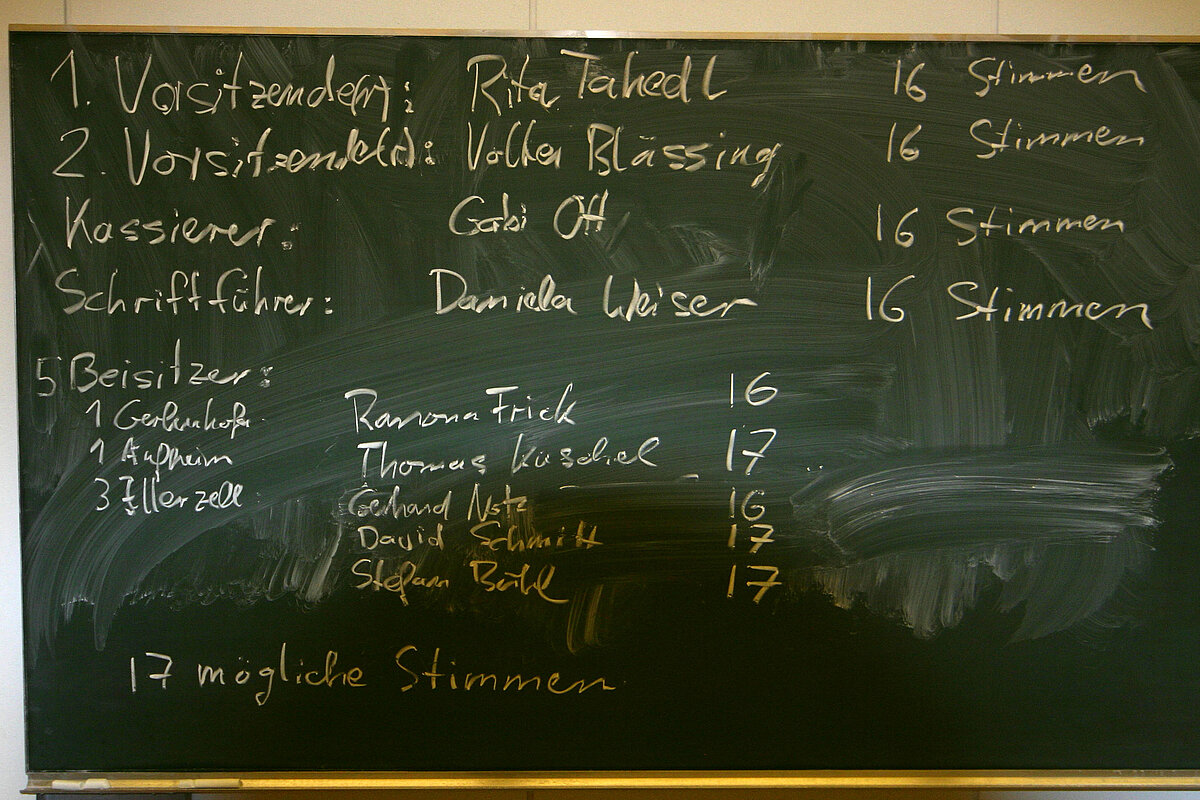 1. Vorsitzende(r): Rita Tahedl 16 Stimmen
2. Vorsitzende(r): Volker Blässing 16 Stimmen
Kassierer: Gabi Ott 16 Stimmen
Schriftführer: Daniela Weiser 16 Stimmen
5 Beisitzer:
1 Gerlenhofen Ramona Frick 16
1 Aufheim Thomas Kuschel 17
3 Illerzell: Gerhard Notz 16
David Schmitt 17
Stefan Bühl 17
17 mögliche Stimmen